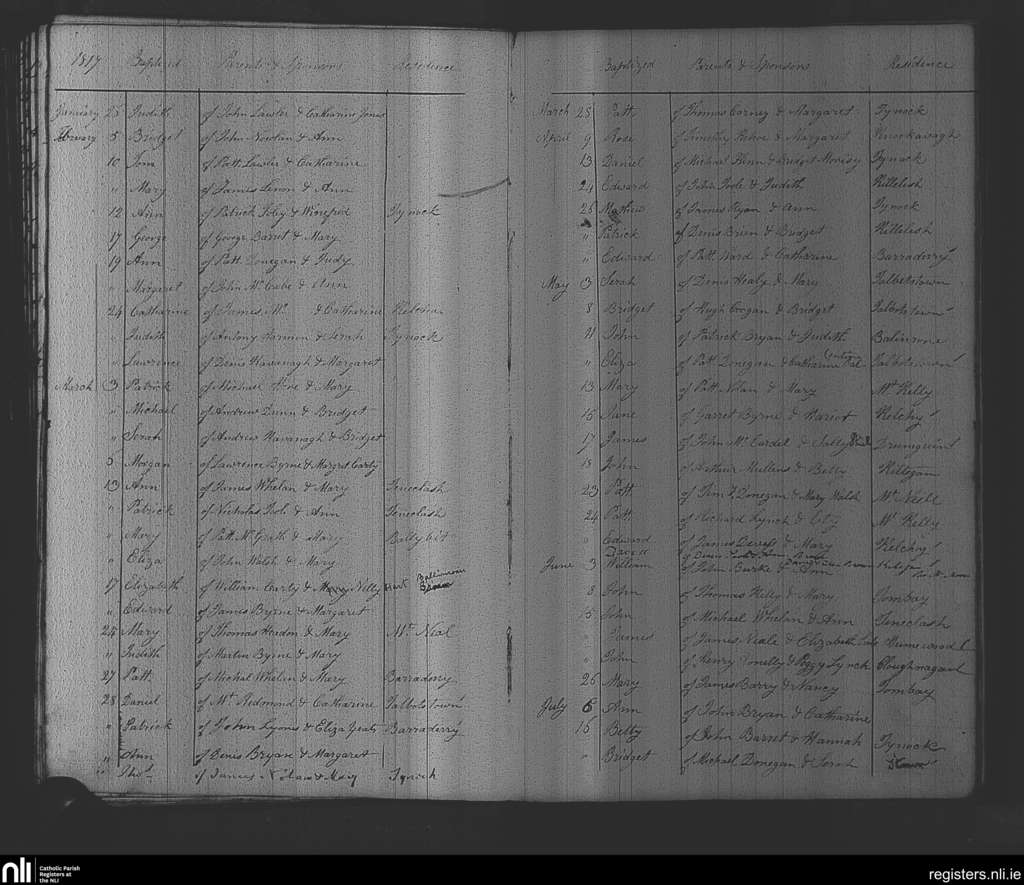 1817 Baptized Parents & Sponsors Residence
January 25 Judith of John Lawler & Catharine Jones
February 5 Bridget of John Nowlan & Ann
10 Tom of Patt Lawler & Catharine
" Mary of James Lenon & Ann
12 Ann of Patrick Toby & Winefred Tynock
17 George of George Barret & Mary
19 Ann of Patt Donegan & Judy
" Margaret of John McCabe & Ann
24 Catharine of James Mc & Catharine
" Judith of Antony Harmon & Serah Tynock
" Lawrence of Denis Kavanagh & Margaret
March 3 Patrick of Michael & Mary
" Michael of Andrew Dunn & Bridget
" Serah of Andrew Kavanagh & Bridget
5 Morgan of Lawrence Byrne & Margret Carty
13 Ann of James Whelan & Mary Feneclash
" Patrick of Nicholas Tool & Ann Feneclash
" Mary of Patt McGrath & Mary Ballybit
" Eliza of John Walsh & Mary
17 Elizabeth of William Carty & Nelly Hart Ballinroan
" Edward of James Byrne & Margaret
25 Mary of Thomas Headon & Mary Mt Neal
" Judith of Martin Byrne & Mary
27 Patt of Michal Whelan & Mary Barraderry
28 Daniel of Mt Redmond & Catharine Talbotstown
" Patrick of John Lyons & Eliza Yeats Barraderry
" Ann of Denis Bryan & Margaret
" Thos of James Nolan & Mary Tynock
Baptized Parents & Sponsors Residence
March 25 Patt of Thomas Corney & Margaret Tynock
April 9 Rose of Timothy & Margaret Knockavagh
13 Daniel of Michael & Bridget Tynock
24 Edward of John Toole & Judith Killelish
25 Mathew of James Ryan & Ann Tynock
" Patrick of Denis Brien & Bridget Killelish
" Edward of Patt Ward & Catharine Barraderry
May 3 Serah of Denis Healy & Mary Talbotstown
8 Bridget of Hugh Coogan & Bridget Talbotstown
11 John of Patrick Bryan & Judith
" Eliza of Patt Donegan & Catharine Talbotstown
13 Mary of Patt & Mary Mt Kelly
15 Jane of Garret Byrne & Kelchy
17 James of John & Sally Drumguint
18 John of Arthur Mullens & Betty Killegan
23 Patt of Tim Donegan & Mary Walsh Mt Neal
24 Patt of Richard Lynch & Mt Kelly
" Edward of James & Mary Kelchy
David of
June 3 William of John Burke & Ann
8 John of Thomas Kelly & Mary Tombay
15 John of Michael Whelan & Ann Feneclash
" James of James Neale & Elizabeth Humewood
" John of Henry Donelly & Peggy Lynch Cloughnagaul
26 Mary of James Barry & Nancy Tombay
July 6 Ann of John Bryan & Catharine
15 Betty of John Barret & Hannah Tynock
" Bridget of Michael Donegan & Serah
nli Catholic Parish
Registers at
the NLI
registers.nli.ie